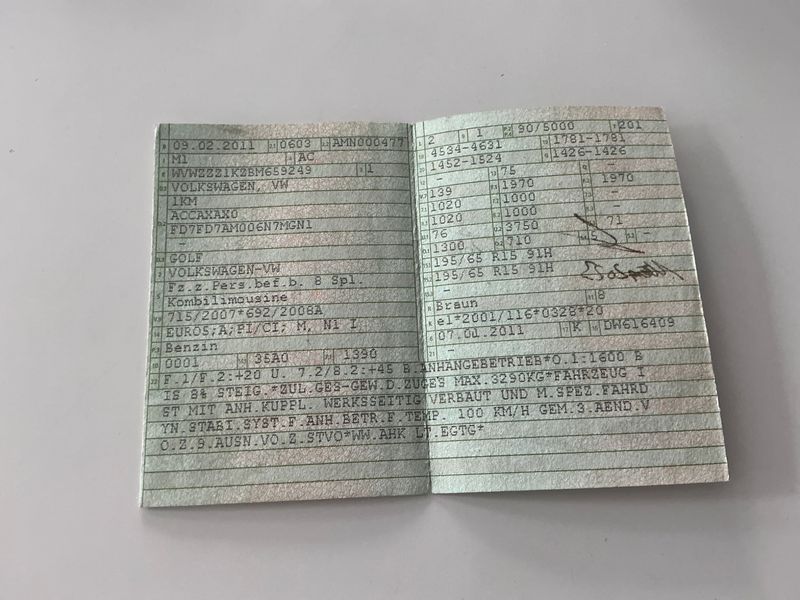 09.02.2011 0603 AMN000477
M1 AC
WVWZZZ1KZBM659249 1
VOLKSWAGEN, VW
1KM
ACCAXAX0
FD7FD7AM006N7MGN1
-
GOLF
VOLKSWAGEN-VW
Fz.z.Pers.bef.b. 8 Spl.
Kombilimousine
715/2007*692/2008A
EURO5;A;PI/CI; M, N1 I
Benzin
0001 35A0 1390
2 1 90/5000 201
4534-4631 1781-1781
1452-1524 1426-1426
- 75 -
139 1970 1970
1020 1000 -
1020 1000 -
76 3750 71
1300 710 5
195/65 R15 91H
195/65 R15 91H
-
Braun 8
e1*2001/116*0328*20
07.01.2011 K DW616409
-
F.1/F.2:+20 U. 7.2/8.2:+45 B.ANHANGEBETRIEB*O.1:1600 B
IS 8% STEIG.*ZUL.GES-GEW.D.ZUGES MAX.3290KG*FAHRZEUG I
ST MIT ANH.KUPPL. WERKSSEITIG VERBAUT UND M.SPEZ.FAHRD
YN.STABI.SYST.F.ANH.BETR.F.TEMP. 100 KM/H GEM.3.AEND.V
O.Z.9.AUSN.VO.Z.STVO*WW.AHK LT.EGTG*